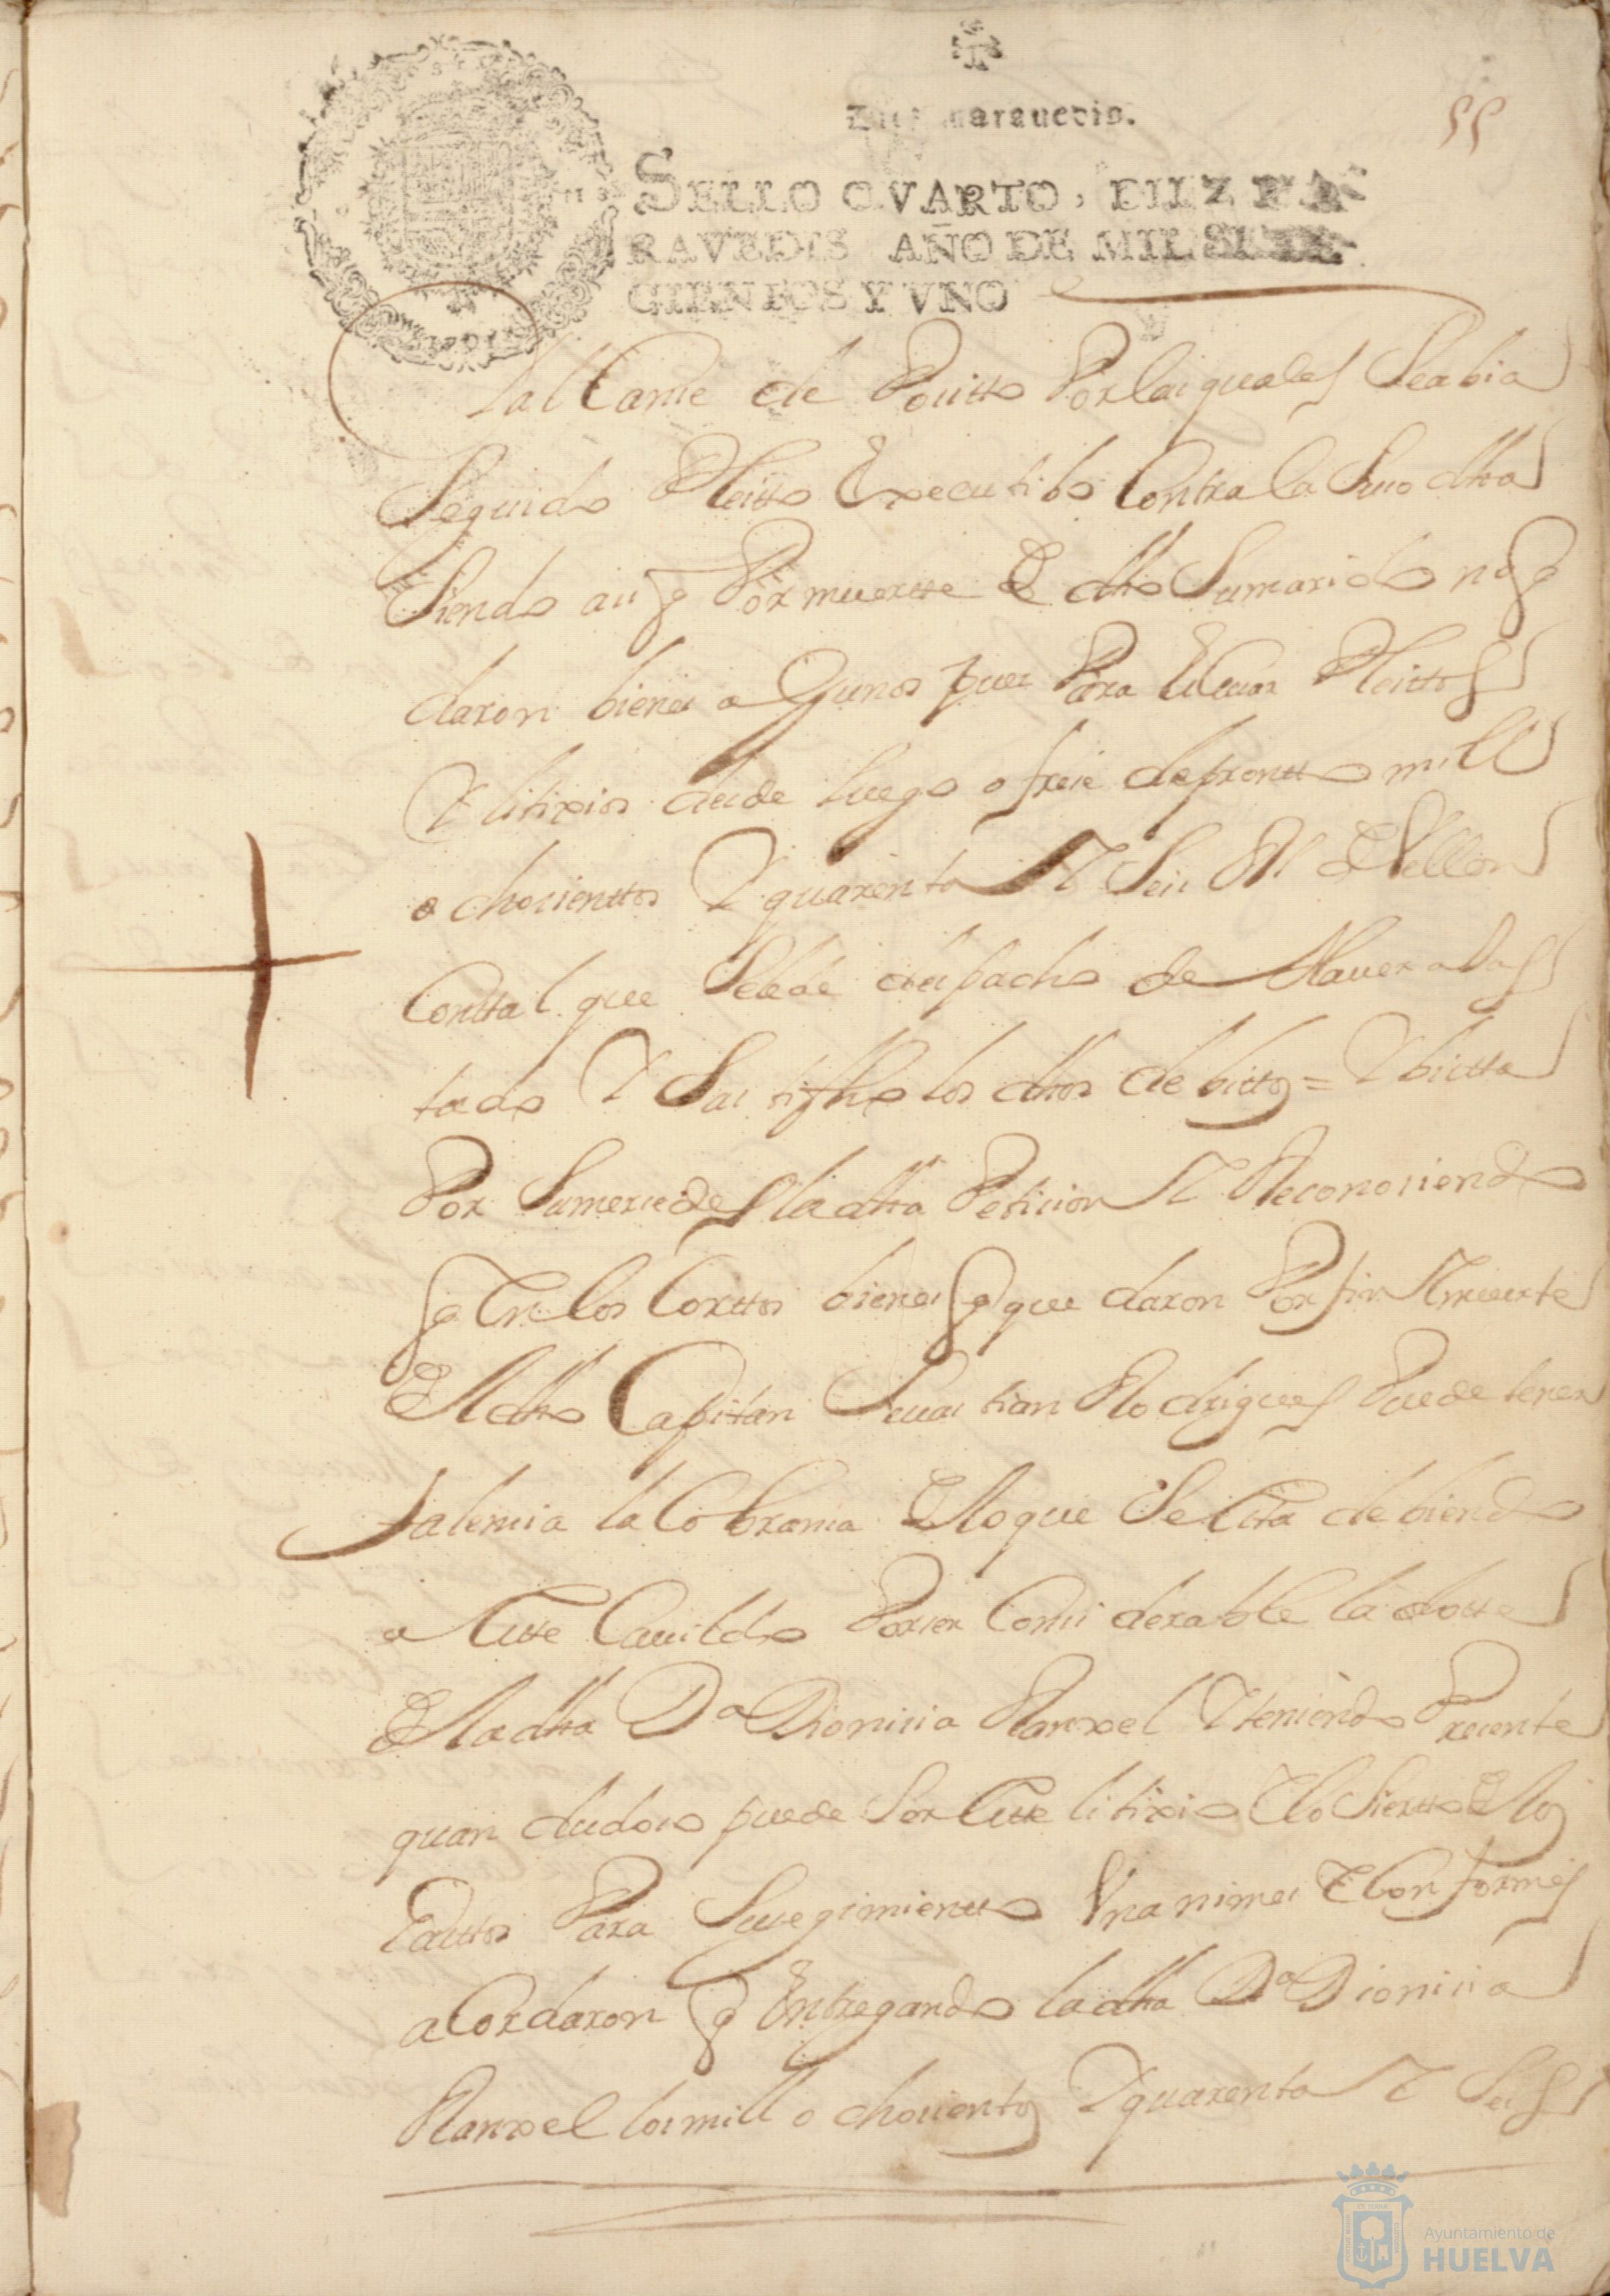 Diez marauedis.
55
SELLO QVARTO, DIEZ MA-
RAVEDIS, AÑO DE MIL SETE-
CIENTOS Y VNO
alCance de Positto Por las quales Se abia
Seguido Pleitto Executibo Contra la Suso dha
Siendo assi q Por muertte de dho Sumarido no q
daron bienes algunos pues Para Escusar Pleittos
Y litixios desde luego ofrese de prontto mill
ochosienttos Y quarenta Y Seis Rs de Vellon
Contal que Sele de despacho de Hauer a Jus
tado Y Satisfho los dhos debittos = Y bistta
Por Sumersedes la dha Petision Y Reconosiendo
q En los Corttos bienes q que daron Por fin Y muerte
del dho Capitan Seuastian Rodrigues Puede tener
falensia la Cobransa de lo que Se Esta debiendo
a Este Cauildo Por ser Considerable la dotte
de la dha Da Dionisia Ranxel Y teniendo Presente
quan dudoso puede Ser Este litixio Y lo Siertto de los
Gasttos Para Suseguimientto Vnanimes Y Conformes
aCordaron q Entregando la dha Da Dionisia
Ranxel los mill ochosientos Y quarenta Y Seis
Ayuntamiento de
HUELVA